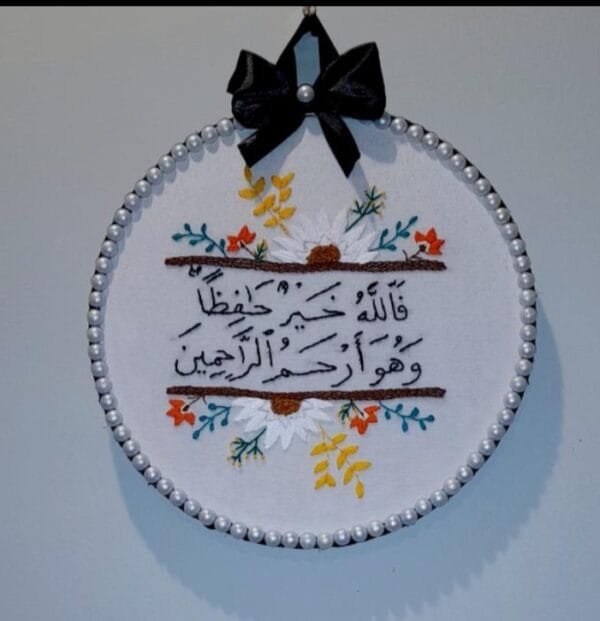 فَٱللَّهُ خَيْرٌ حَٰفِظًا
وَهُوَ أَرْحَمُ ٱلرَّٰحِمِينَ